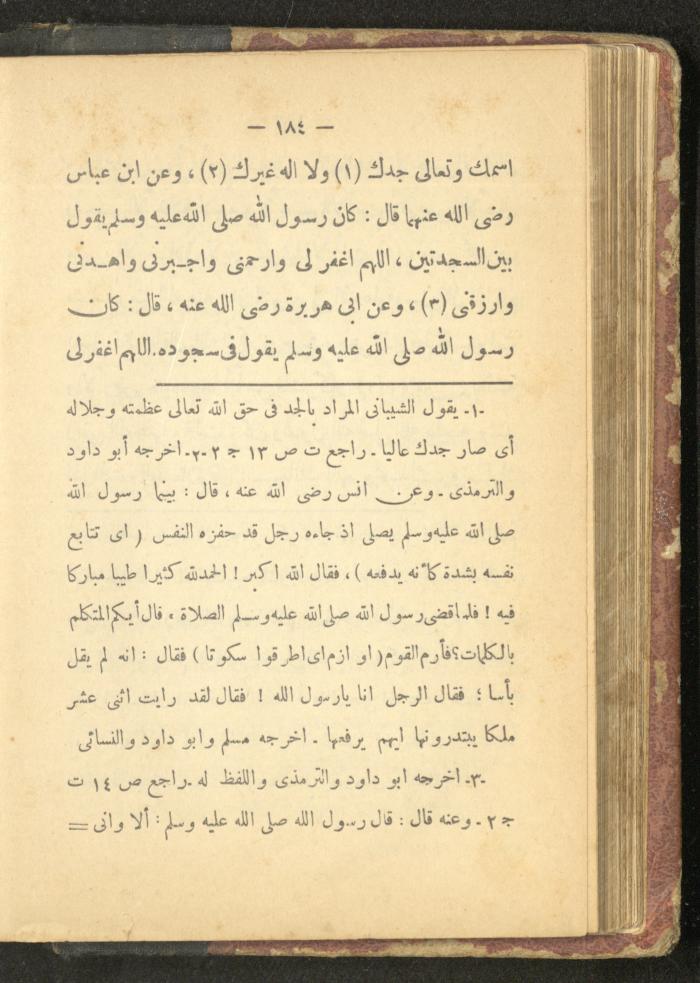 — ١٨٤ —
اسمك وتعالى جدك (١) ولا اله غيرك (٢) ، وعن ابن عباس
رضى الله عنهما قال : كان رسول الله صلى الله عليه وسلم يقول
بين السجدتين ، اللهم اغفر لى وارحمنى واجـبرنى واهـدنى
وارزقنى (٣) ، وعن ابى هريرة رضى الله عنه ، قال : كان
رسول الله صلى الله عليه وسلم يقول فى سجوده. اللهم اغفر لى
-١- يقول الشيبانى المراد بالجد فى حق الله تعالى عظمته وجلاله
أى صار جدك عاليا . راجع ت ص ١٣ ج ٢ -٢- اخرجه أبو داود
والترمذى . وعن انس رضى الله عنه ، قال : بينما رسول الله
صلى الله عليه وسلم يصلى اذ جاءه رجل قد حفزه النفس ( اى تتابع
نفسه بشدة كأنه يدفعه ) ، فقال الله اكبر ! الحمدلله كثيرا طيبا مباركا
فيه ! فلما قضى رسول الله صلى الله عليه وسـلم الصلاة ، قال أيكم المتكلم
بالكلمات؟ فأرم القوم ( او ازم اى اطرقوا سكوتا ) فقال : انه لم يقل
بأسا ؛ فقال الرجل انا يارسول الله ! فقال لقد رايت اثنى عشر
ملكا يبتدرونها ايهم يرفعها . اخرجه مسلم وابو داود والنسائى
-٣- اخرجه ابو داود والترمذى واللفظ له . راجع ص ١٤ ت
ج ٢ . وعنه قال : قال رسول الله صلى الله عليه وسلم : ألا وانى =